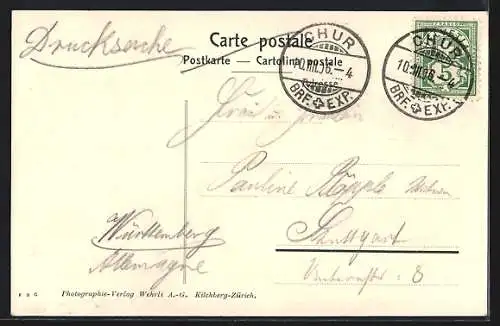 Drucksache
Carte postale
Postkarte — Cartolina postale
CHUR
10.VIII.06.-4
BRF. EXP.
CHUR
10.VIII.06.-4
BRF. EXP.
5
Adresse
Frau u.
Pauline
Stuttgart
8
Württemberg
Allemagne
Photographie-Verlag Wehrli A.-G. Kilchberg-Zürich.